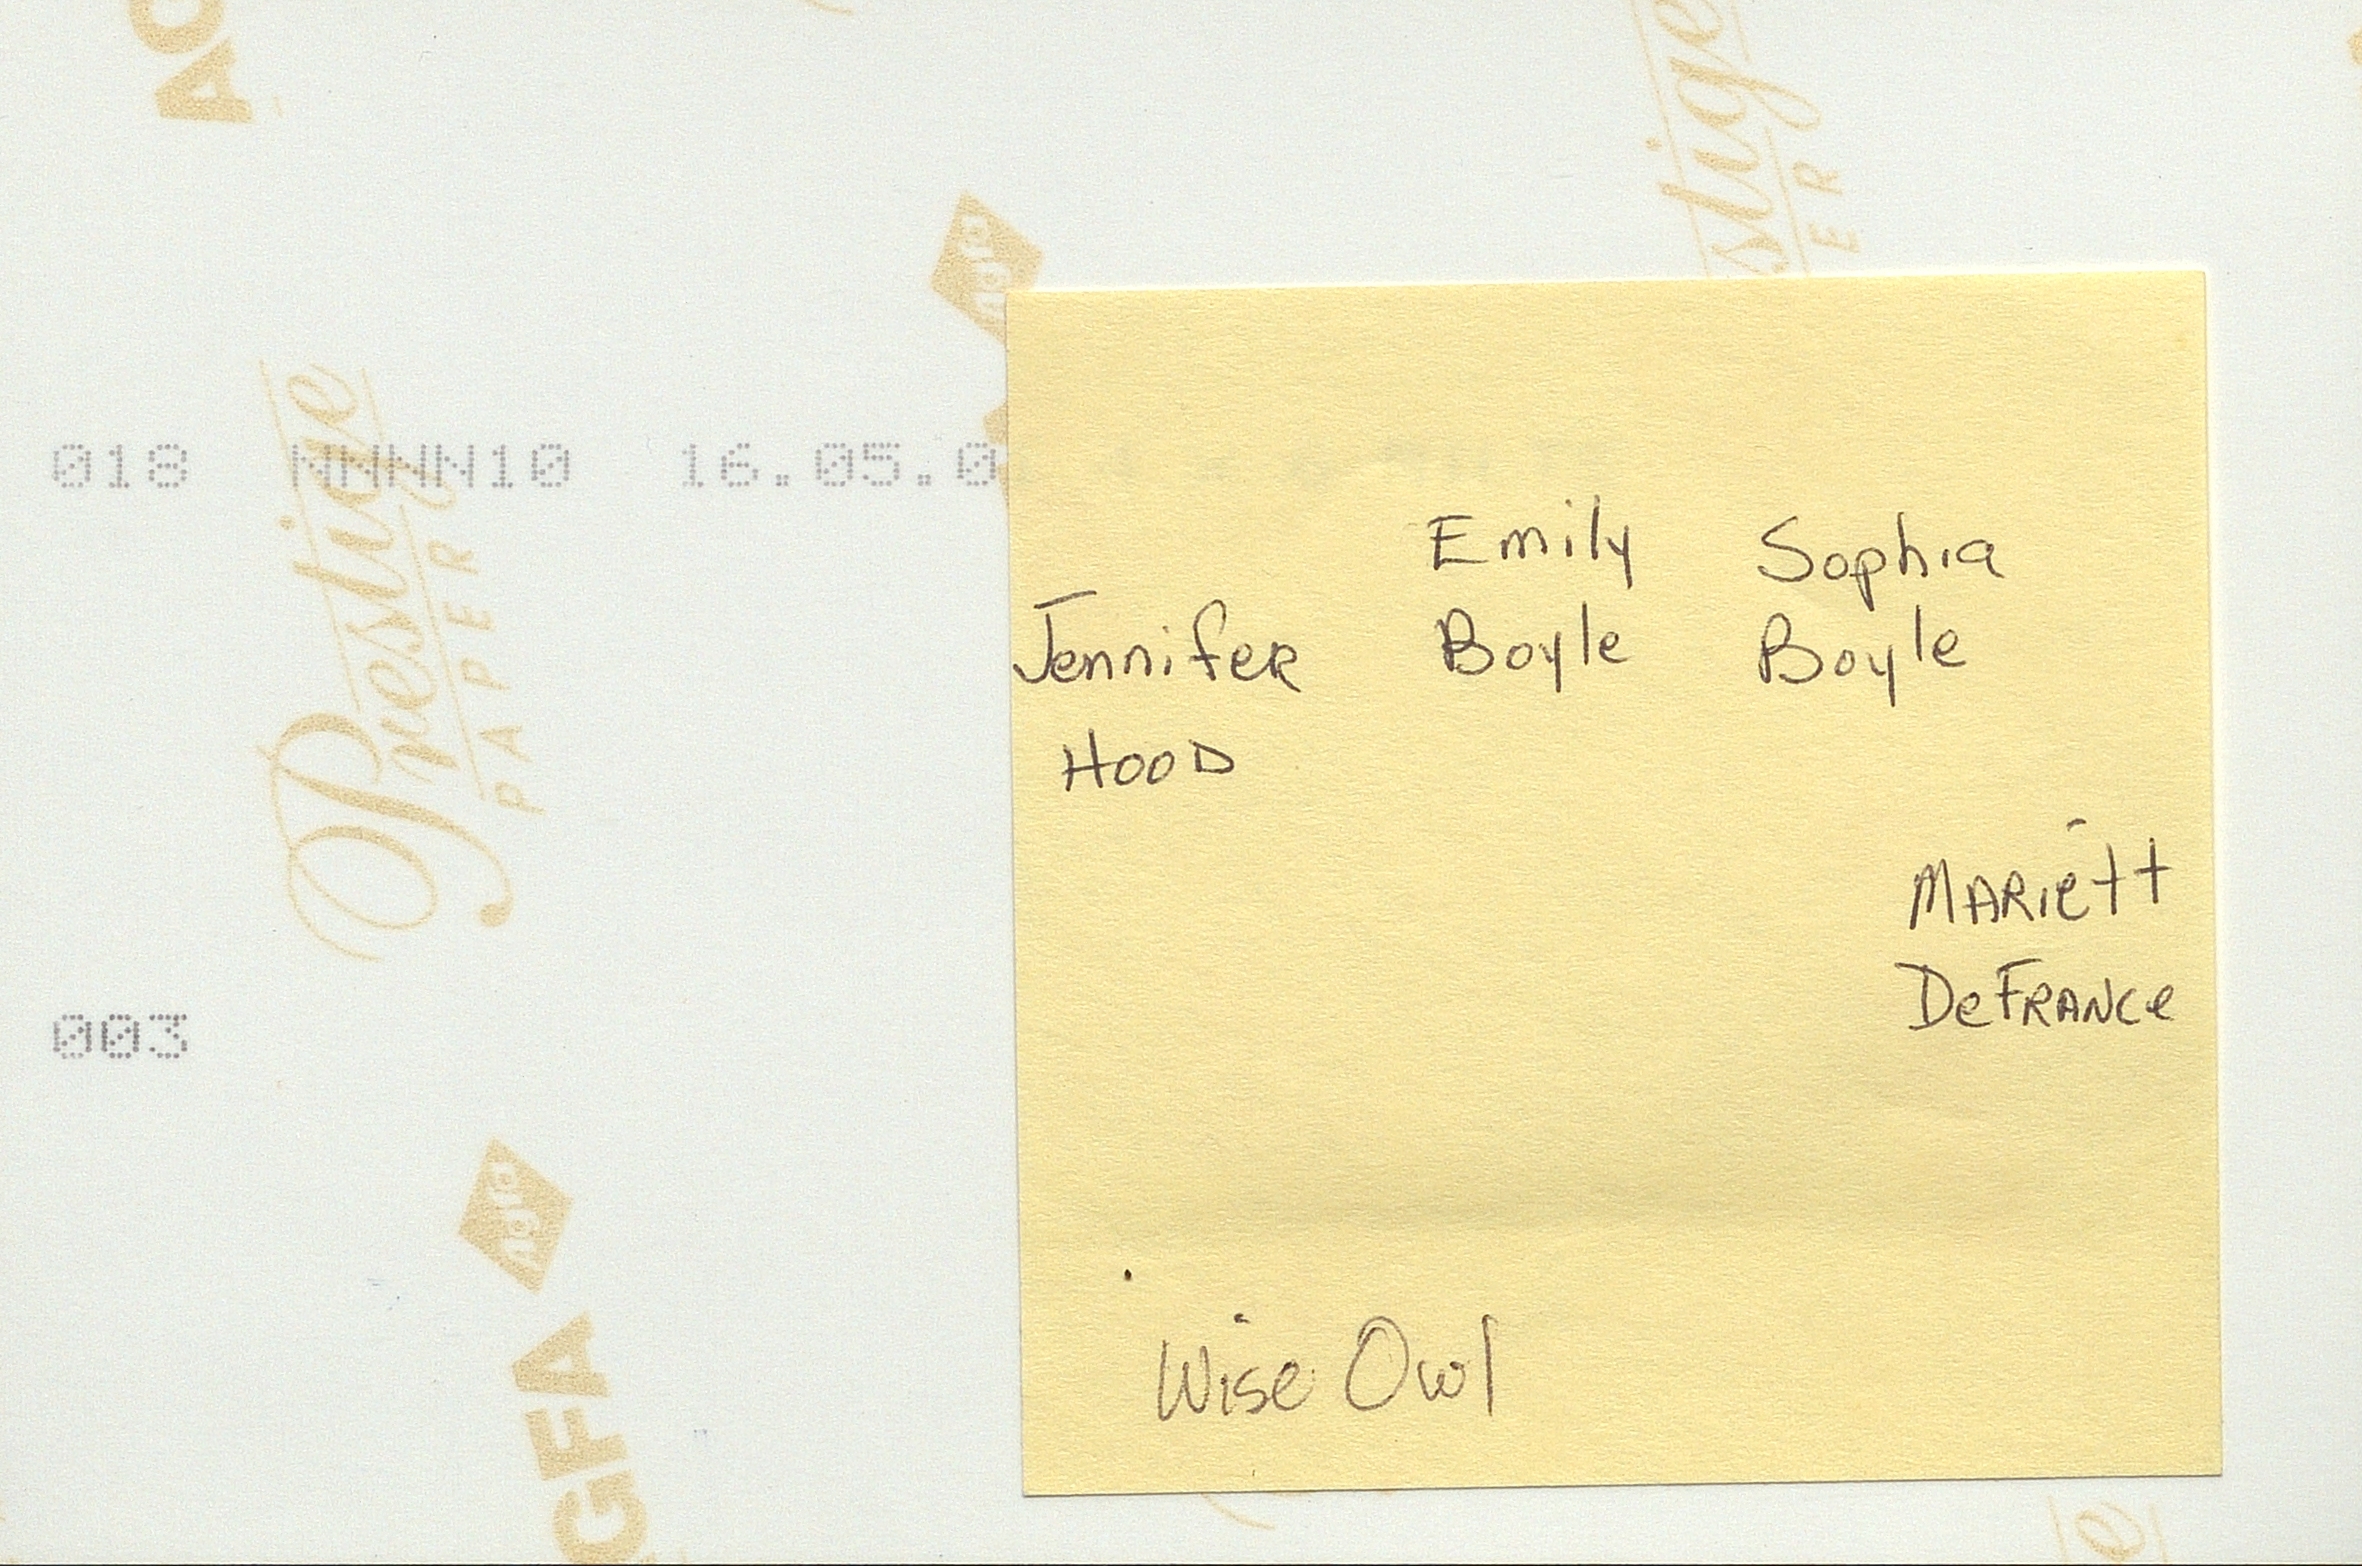 AG
stige
ER
agfa
018 NNNN10 16.05.0
Prestige
PAPER
Emily Sophia
Jennifer Boyle Boyle
HOOD
MARIett
DeFRANCE
003
agfa
GFA
Wise Owl
e